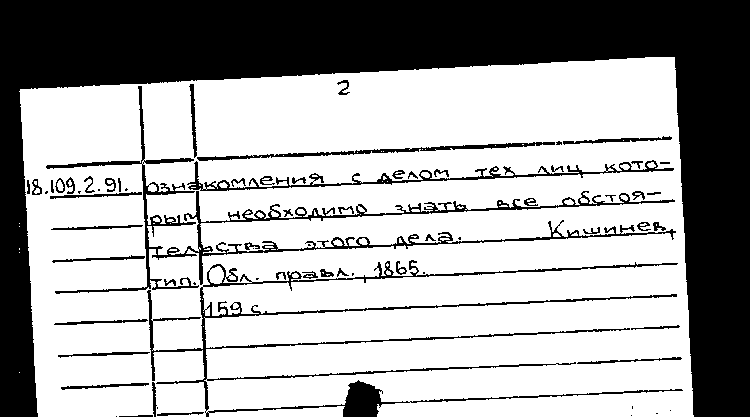 2
18.109.2.91. ознакомления с делом тех лиц кото-
рым необходимо знать все обстоя-
тельства этого дела. Кишинев,
тип. Обл. правл., 1865.
159 с.